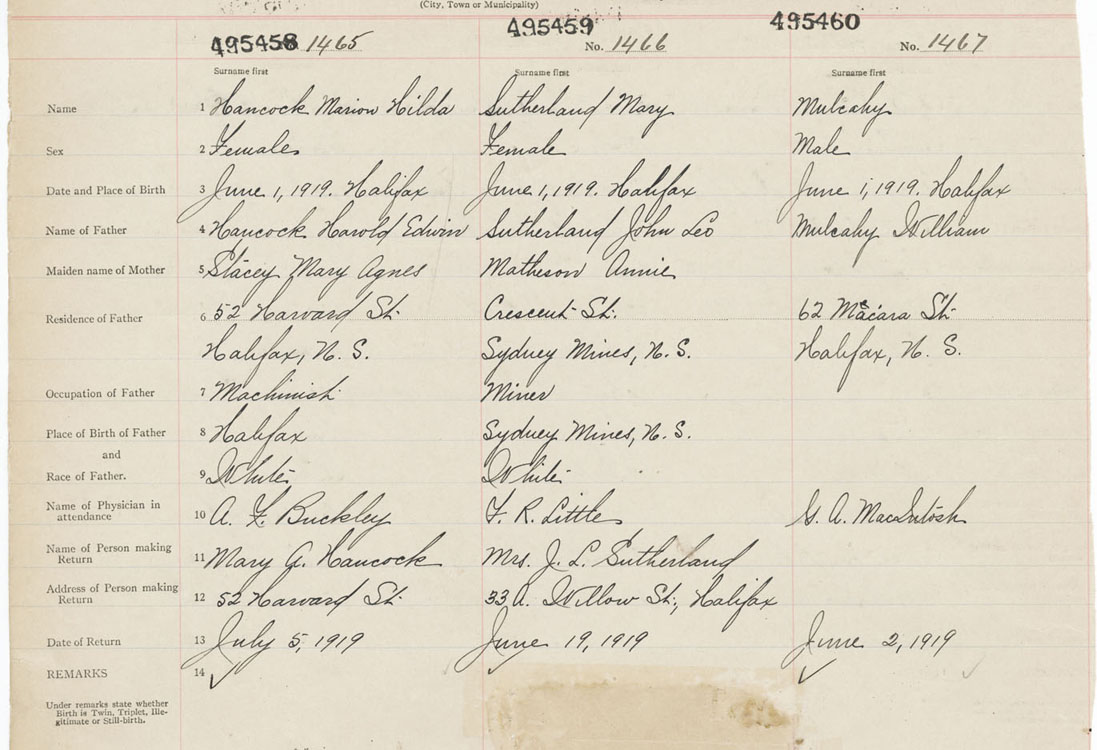 (City, Town or Municipality)
495458 1465
495459
No. 1466
495460
No. 1467
Surname first Surname first Surname first
Name 1 Hancock Marion Hilda Sutherland Mary Mulcahy
Sex 2 Female Female Male
Date and Place of Birth 3 June 1, 1919. Halifax June 1, 1919. Halifax June 1, 1919. Halifax
Name of Father 4 Hancock Harold Edwin Sutherland John Leo Mulcahy William
Maiden name of Mother 5 Stacey Mary Agnes Matheson Annie
Residence of Father 6 52 Harvard St. Crescent St. 62 Macara St.
Halifax, N. S. Sydney Mines, N. S. Halifax, N. S.
Occupation of Father 7 Machinist Miner
Place of Birth of Father 8 Halifax Sydney Mines, N. S.
and
Race of Father. 9 White White
Name of Physician in
attendance 10 A. F. Buckley F. R. Little G. A. MacIntosh
Name of Person making
Return 11 Mary A. Hancock Mrs. J. L. Sutherland
Address of Person making
Return 12 52 Harvard St. 33 A. Willow St., Halifax
Date of Return 13 July 5, 1919 June 19, 1919 June 2, 1919
REMARKS 14
Under remarks state whether
Birth is Twin, Triplet, Ille-
gitimate or Still-birth.